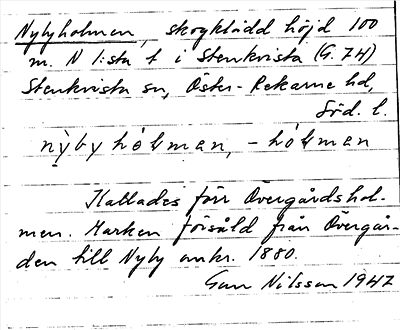 Nybyholmen, skogklädd höjd 100
m. N 1:sta t i Stenkvista (G. 7H)
Stenkvista sn, Öster-Rekarne hd,
Söd. l.
nỳbyhòlman, -hòlman
Kallades förr Övergårdshol-
men. Marken försåld från Övergår-
den till Nyby omkr. 1880.
Gun Nilsson 1947